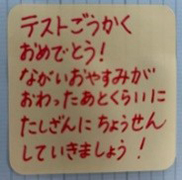 テストごうかく
おめでとう!
ながいおやすみが
おわったあとくらいに
たしざんにちょうせん
していきましょう!